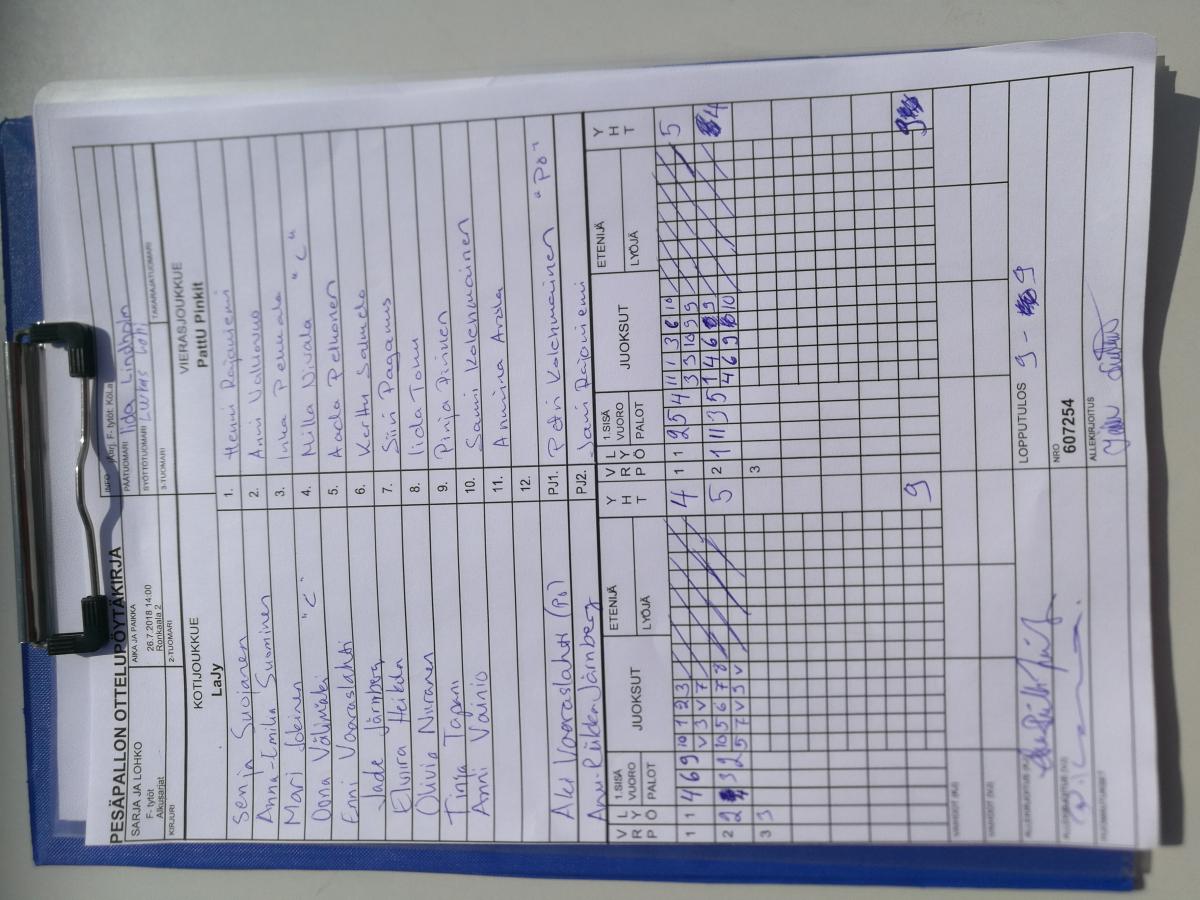 PESÄPALLON OTTELUPÖYTÄKIRJA
SARJA JA LOHKO
F- tytöt
Alkusarjat
AIKA JA PAIKKA
26.7.2018 14:00
Ronkaala 2
INFO
F- tytöt KoLa
PÄÄTUOMARI Iida Lindholm
SYÖTTÖTUOMARI
KIRJURI
2-TUOMARI
3-TUOMARI
TAKARAJATUOMARI
KOTIJOUKKUE
LaJy
VIERASJOUKKUE
PattU Pinkit
Senja Suojanen
1. Henni Rajaniemi
Anna-Emilia Suominen
2. Anni Valtavuo
Mari Jokinen
3. Inka Pennala
Oona Välimäki "C"
4. Milla Nivala "C"
Enni Vaaraslahti
5. Aada Peltonen
Jade Järnberg
6. Kerttu Salmela
Elviira Heikola
7. Siiri Paganus
Olivia Niiranen
8. Iida Tommi
Tinja Tapani
9. Pinja Pirinen
Anni Väinio
10. Sanni Kolehmainen
11. Anniina Arola
12.
Aki Vaaraslahti (PJ)
PJ1. Petri Kolehmainen "PJ"
Anu-Riikka Järnberg
PJ2. Jani Rajaniemi
V R P
L Y Ö
1.SISÄ VUORO PALOT
JUOKSUT
ETENIJÄ
LYÖJÄ
Y H T
V R P
L Y Ö
1.SISÄ VUORO PALOT
JUOKSUT
ETENIJÄ
LYÖJÄ
Y H T
1 1 4 6 9 10 1 2 3 4
1 1 2 5 4 11 1 3 6 10 5
V 3 V 7
3 3 10 9 9
2 2 3 9 10 5 6 7 8 5
2 1 11 3 5 1 4 6 9 4
5 7 V 3 V
4 6 9 10
3 3
3
9
9
VAIHDOT (KJ)
VAIHDOT (VJ)
ALLEKIRJOITUS (KJ)
ALLEKIRJOITUS (VJ)
LOPPUTULOS 9 - 9
NRO
607254
ALLEKIRJOITUS